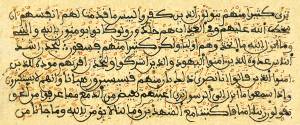 ترى كثيرا منهم يتولون الذين كفروا لبيس ما قدمت لهم أنفسهم أن
سخط الله عليهم وفي العذاب هم خلدون ولو كانوا يومنون بالله والنبيء
وما أنزل إليه ما اتخذوهم أولياء ولكن كثيرا منهم فسقون لتجدن أشد
الناس عدوة للذين ءامنوا اليهود والذين أشركوا ولتجدن أقربهم مودة
للذين ءامنوا الذين قالوا إنا نصرى ذلك بأن منهم قسيسين ورهبانا وأنهم لا يستكبرون
وإذا سمعوا ما أنزل إلى الرسول ترى أعينهم تفيض من الدمع مما عرفوا من الحق
يقولون ربنا ءامنا فاكتبنا مع الشهدين وما لنا لا نومن بالله وما جاءنا من